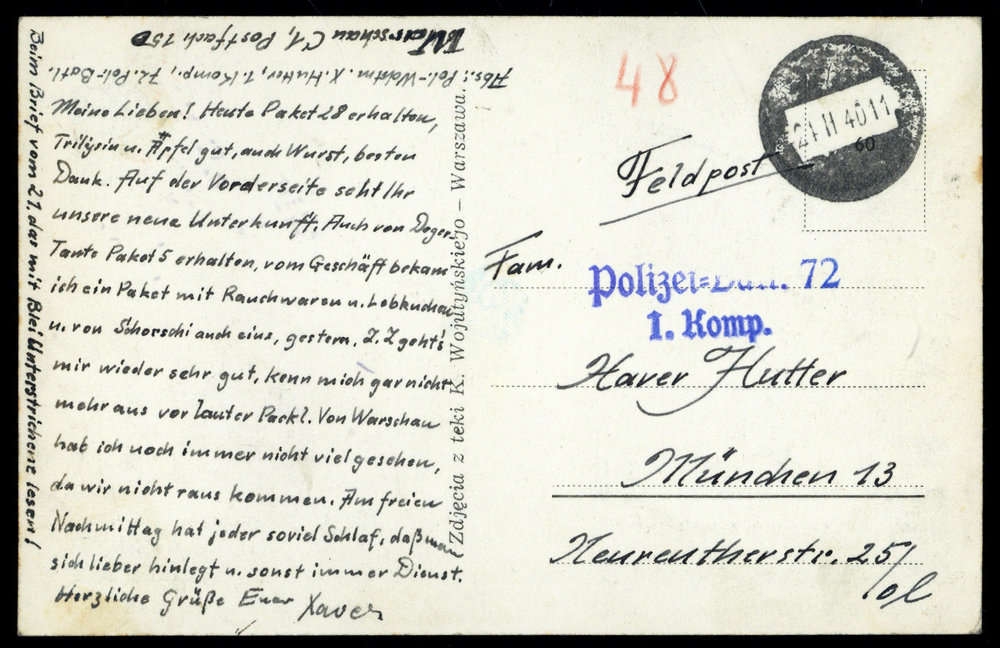 Warschau C1, Postfach 150
Abs.: Pol.-Wchtm. X. Hutter, 1. Komp., 72. Pol.-Batl.
Meine Lieben! Heute Paket 28 erhalten,
Trilysin u. Äpfel gut, auch Wurst, besten
Dank. Auf der Vorderseite seht Ihr
unsere neue Unterkunft. Auch von Deger-
Tante Paket 5 erhalten, vom Geschäft bekam
ich ein Paket mit Rauchwaren u. Lebkuchen
u. von Schorschi auch eins, gestern. Z. Z. geht's
mir wieder sehr gut, kenn mich gar nicht
mehr aus vor lauter Packl. Von Warschau
hab ich noch immer nicht viel gesehen,
da wir nicht raus kommen. Am freien
Nachmittag hat jeder soviel Schlaf, daß man
sich lieber hinlegt u. sonst immer Dienst.
Herzliche Grüße Euer Xaver
Beim Brief vom 21. das mit Blei Unterstrichene lesen!
Zdjęcia z teki K. Wojutyńskiejo – Warszawa.
48
24 11 40 11
60
Feldpost
Fam.
Polizei= 72
1. Komp.
Xaver Hutter
München 13
Neureutherstr. 25/